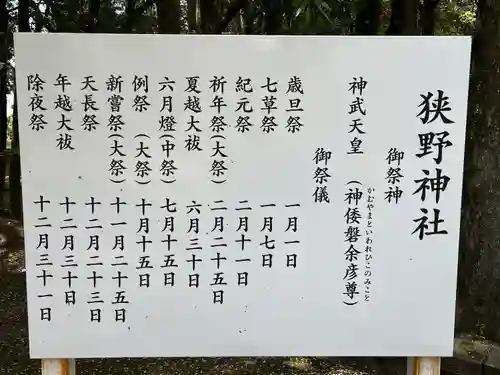 狭野神社
御祭神
神武天皇 (神倭磐余彦尊)
かむやまといわれひこのみこと
御祭儀
歳旦祭 一月一日
七草祭 一月七日
紀元祭 二月十一日
祈年祭(大祭) 二月二十五日
夏越大祓 六月三十日
六月燈(中祭) 七月十五日
例祭 (大祭) 十月十五日
新嘗祭(大祭) 十一月二十五日
天長祭 十二月二十三日
年越大祓 十二月三十日
除夜祭 十二月三十一日